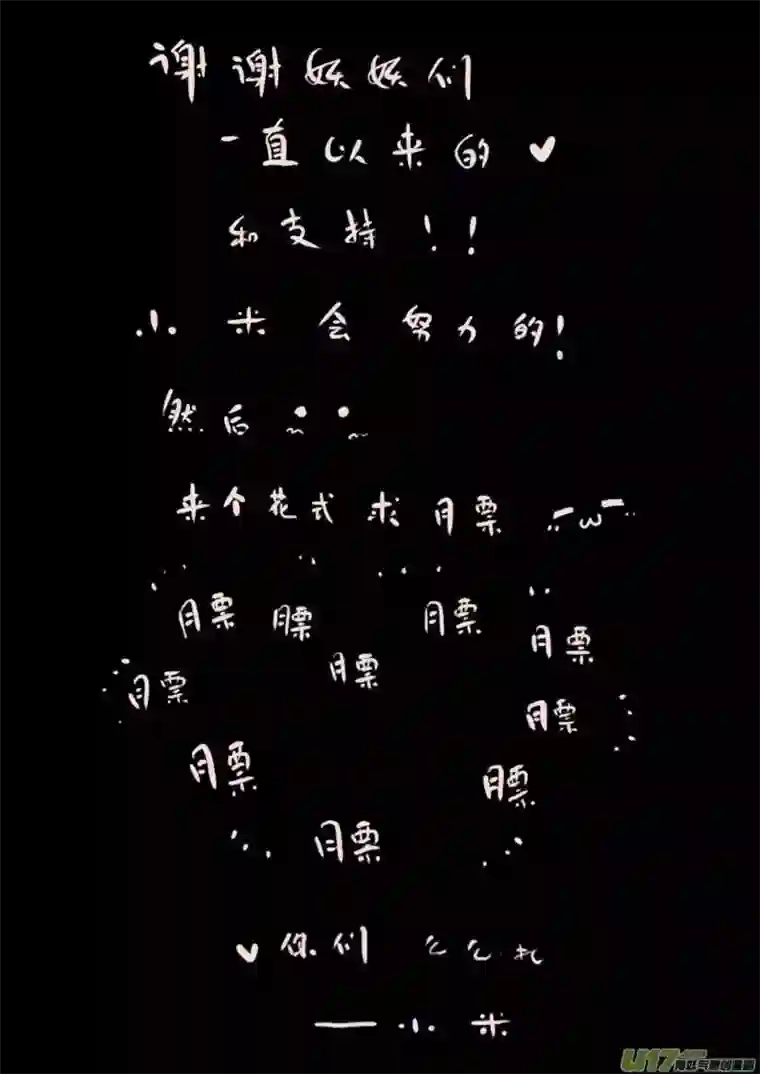 谢谢妖妖们
一直以来的♥
和支持！！
小米会努力的！
然后
来个花式求月票 ω
月票 月票 月票 月票
月票 月票
月票
月票 月票
月票
♥你们 么么扎
——小米
U17 有妖气原创漫画